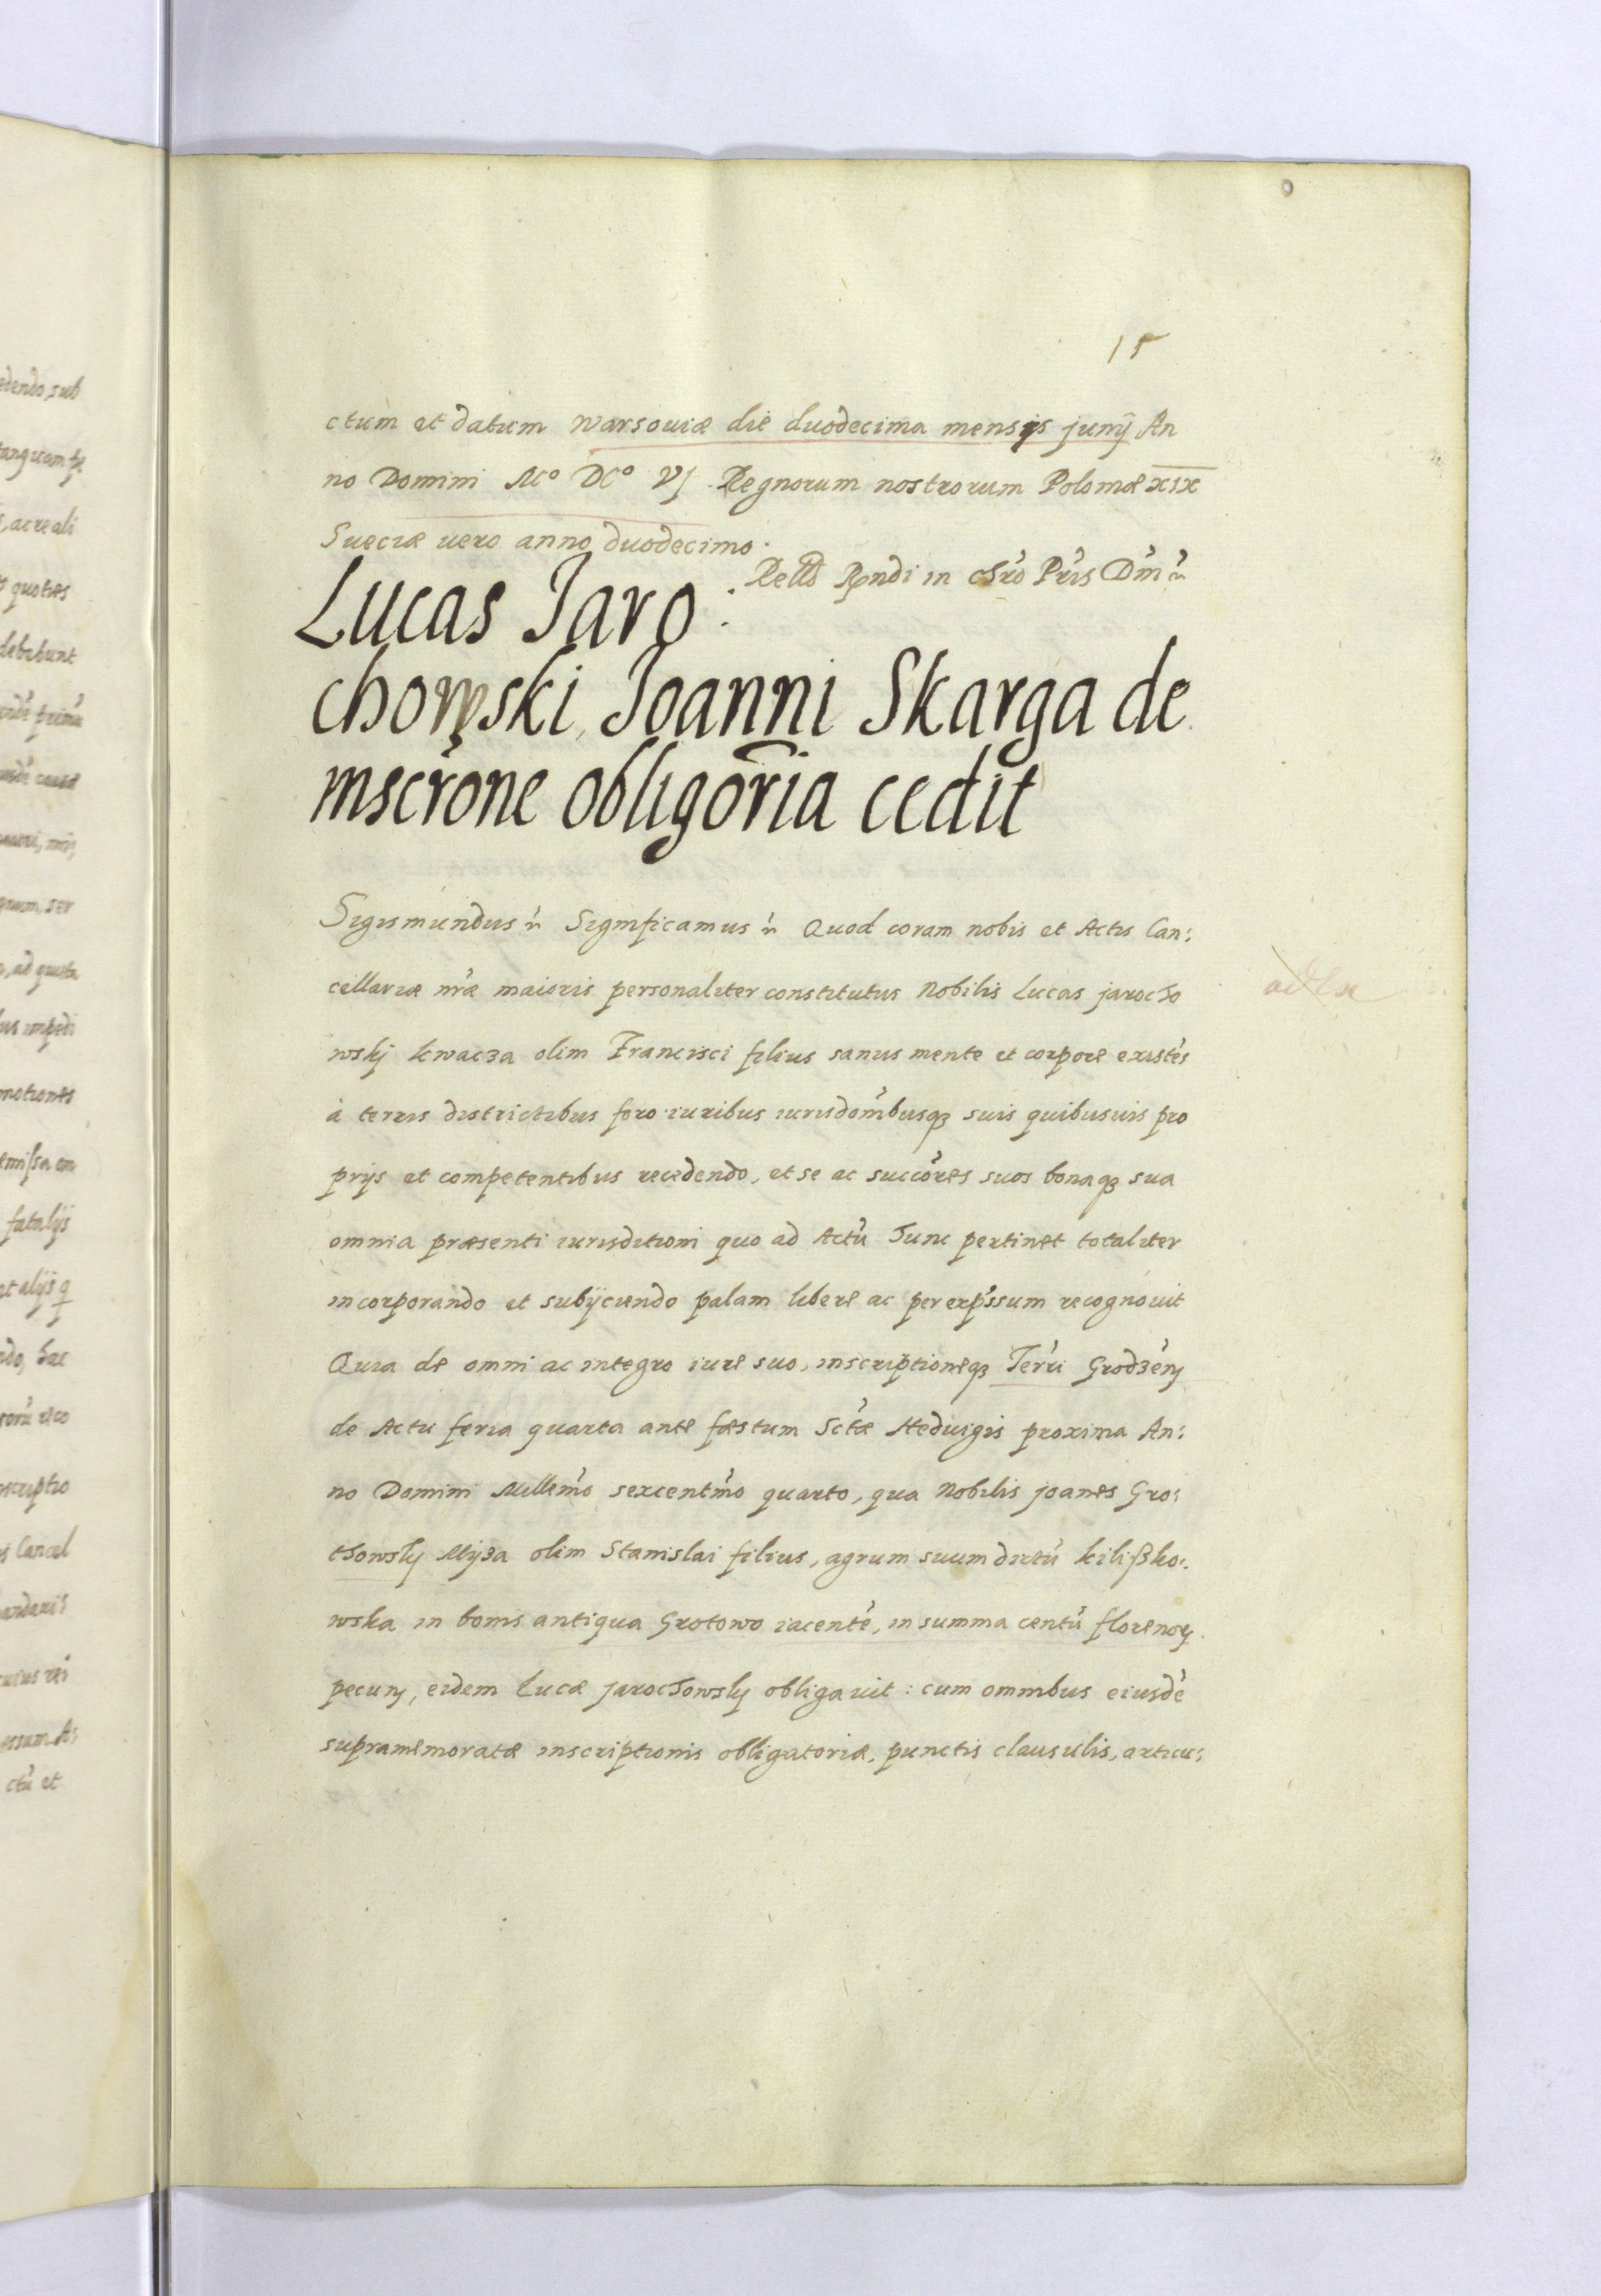 15
ctum et datum Warsouiæ die duodecima mensis junÿ An
no Domini Mº DCº VI Regnorum nostrorum Poloniæ xix
Sueciæ uero anno duodecimo.
Rella Rndi in chro Pris Dni
Lucas Jaro:
chowski, Joanni Skarga de
inscrone obligoria cedit
Sigismundus Significamus Quod coram nobis et Actis Can:
cellariæ nræ maioris personaliter constitutus Nobilis Lucas jarocho
wskj kwacza olim Francisci filius sanus mente et corpore existes
à terris districtibus foro iuribus iurisdombusq3 suis quibusuis pro
prijs et competentibus recedendo, et se ac succores suos bonaq3 sua
omnia præsenti iurisditioni quo ad Actu hunc pertinet totaliter
incorporando et subÿciendo palam libere ac per expssum recognouit
Quia de omni ac integro iure suo, inscriptioneq3 Terri Grodzen
de Actu feria quarta ante fæstum Sctæ Heduigis proxima An:
no Domini Millemo sexcentmo quarto, qua Nobilis joanes Gro:
thowskj Mÿza olim Stanislai filius, agrum suum dictu kilißko:
wska in bonis antiqua Grotowo iacente, in summa centu florenor
pecun, eidem Lucæ jarochowskj obligauit: cum omnibus eiusde
supramemoratæ inscriptionis obligatoriæ, punctis clausulis, articu:
edendo, sub
tanquam
, ac reali
quoties
debebunt
primu
causæ
ser
ad quæta
impedi
motiones
emissa
fatalÿs
et alÿs q
ndo, hac
reco
nscriptio
Cancel
rei
ctu et